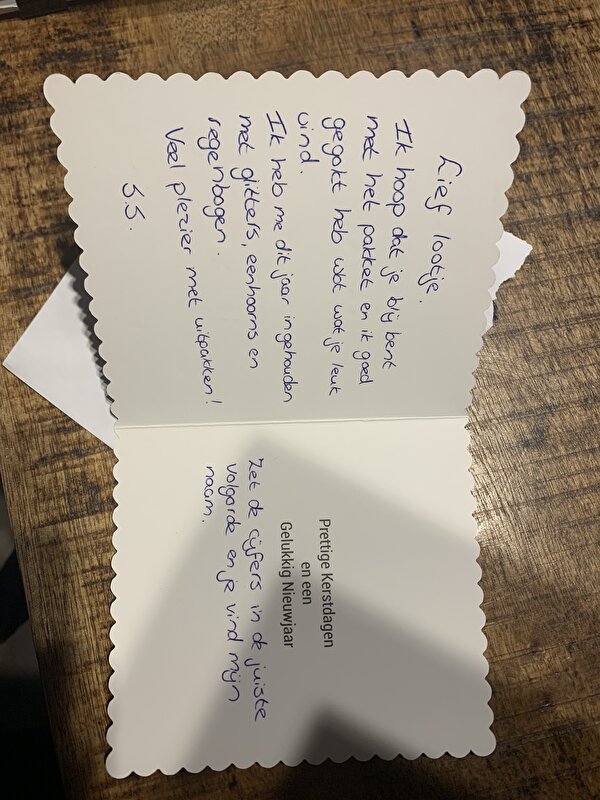 Lief lootje.
Ik hoop dat je blij bent
met het pakket en ik goed
gegokt heb wat je leuk
vind.
Ik heb me dit jaar ingehouden
met glitters, eenhoorns en
regenbogen.
Veel plezier met uitpakken!
S.S.
Prettige Kerstdagen
en een
Gelukkig Nieuwjaar
Zet de cijfers in de juiste
volgorde en je vind mijn
naam.